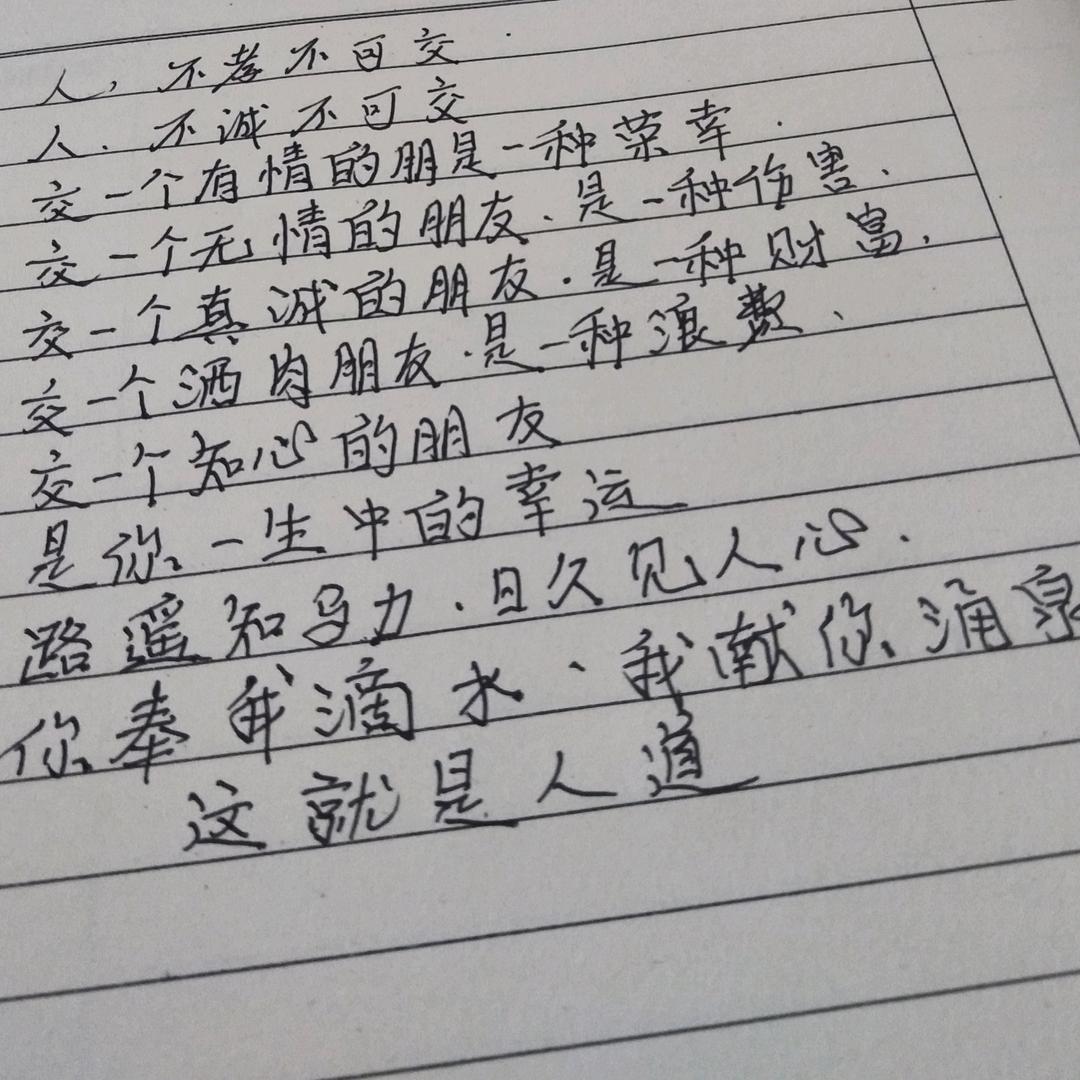 人，不孝不可交.
人.不诚不可交
交一个有情的朋是一种荣幸.
交一个无情的朋友.是一种伤害.
交一个真诚的朋友.是一种财富.
交一个酒肉朋友.是一种浪费、
交一个知心的朋友
是你一生中的幸运
路遥知马力.日久见人心.
你奉我滴水、我献你涌泉
这就是人道